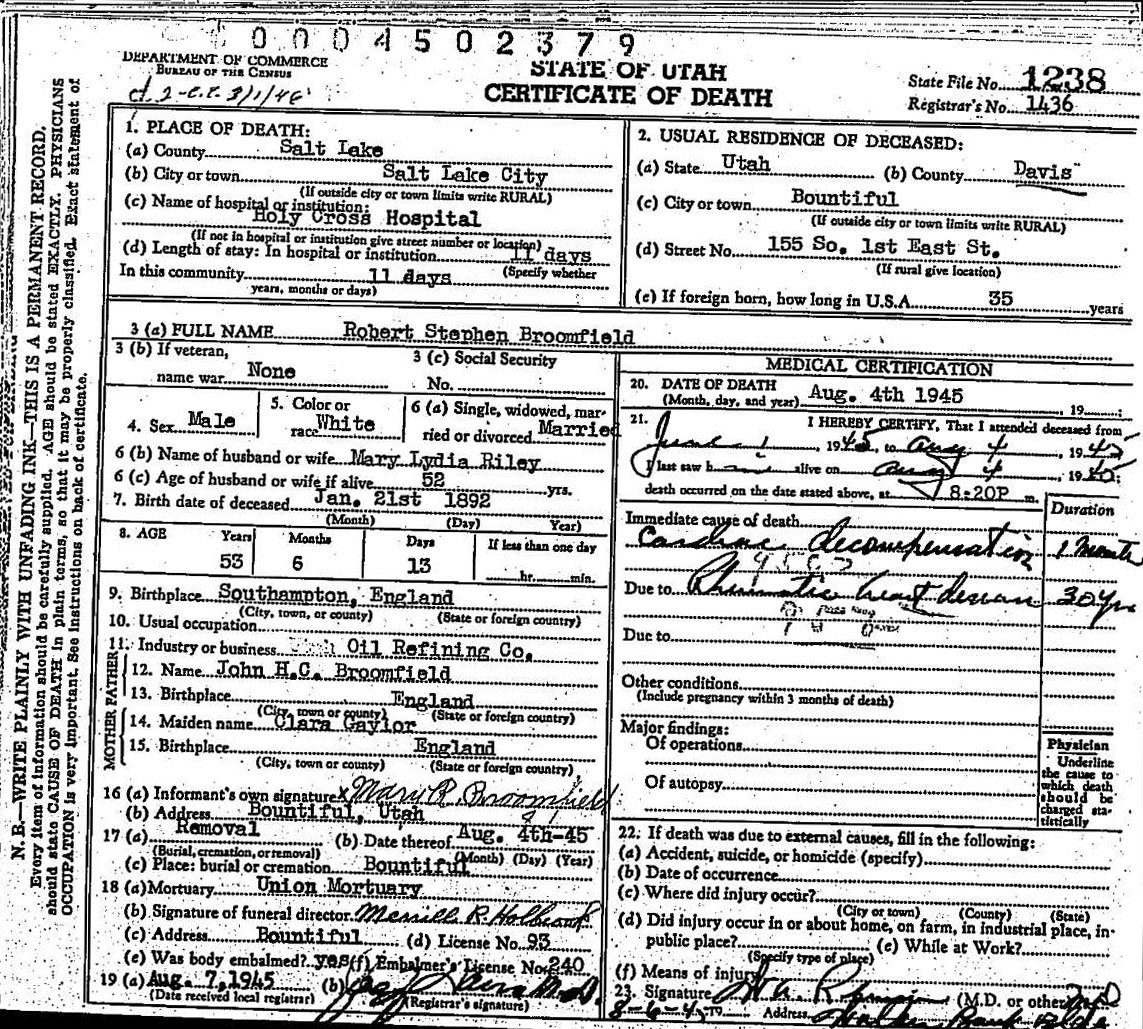 0 0 0 4 5 0 2 3 7 9
DEPARTMENT OF COMMERCE
BUREAU OF THE CENSUS
STATE OF UTAH
CERTIFICATE OF DEATH
State File No. 1238
Registrar's No. 1436
1. PLACE OF DEATH:
(a) County Salt Lake
(b) City or town Salt Lake City
(If outside city or town limits write RURAL)
(c) Name of hospital or institution:
Holy Cross Hospital
(If not in hospital or institution give street number or location)
(d) Length of stay: In hospital or institution 11 days
(Specify whether
In this community 11 days
years, months or days)
2. USUAL RESIDENCE OF DECEASED:
(a) State Utah (b) County Davis
(c) City or town Bountiful
(If outside city or town limits write RURAL)
(d) Street No. 155 So. 1st East St.
(If rural give location)
(e) If foreign born, how long in U.S.A. 35 years
3 (a) FULL NAME Robert Stephen Broomfield
3 (b) If veteran,
name war None
3 (c) Social Security
No.
4. Sex Male
5. Color or
race White
6 (a) Single, widowed, mar-
ried or divorced Married
6 (b) Name of husband or wife Mary Lydia Riley
6 (c) Age of husband or wife if alive 52 yrs.
7. Birth date of deceased Jan. 21st 1892
(Month) (Day) Year)
8. AGE Years Months Days If less than one day
53 6 13 hr. min.
9. Birthplace Southampton, England
(City, town, or county) (State or foreign country)
10. Usual occupation
11. Industry or business Oil Refining Co.
FATHER
12. Name John H.C. Broomfield
13. Birthplace England
(City, town or county) (State or foreign country)
MOTHER
14. Maiden name Clara Gaylor
15. Birthplace England
(City, town or county) (State or foreign country)
16 (a) Informant's own signature x Mary R. Broomfield
(b) Address Bountiful, Utah
17 (a) Removal (b) Date thereof Aug. 4th-45
(Burial, cremation, or removal) (Month) (Day) (Year)
(c) Place: burial or cremation Bountiful
18 (a) Mortuary Union Mortuary
(b) Signature of funeral director Merrill R. Holbrook
(c) Address Bountiful (d) License No. 93
(e) Was body embalmed? yes (f) Embalmer's License No. 240
19 (a) Aug. 7, 1945 (b)
(Date received local registrar) (Registrar's signature)
MEDICAL CERTIFICATION
20. DATE OF DEATH
(Month, day, and year) Aug. 4th 1945 , 19
21. I HEREBY CERTIFY, That I attended deceased from
1945, to Aug 4, 1945
I last saw h alive on Aug 4 1945;
death occurred on the date stated above, at 8:20P m.
Duration
Immediate cause of death
Cardiac decompensation 1 Month
Due to Rheumatic heart disease 30 yrs
Due to
Other conditions
(Include pregnancy within 3 months of death)
Major findings:
Of operations
Of autopsy
Physician
Underline
the cause to
which death
should be
charged sta-
tistically
22. If death was due to external causes, fill in the following:
(a) Accident, suicide, or homicide (specify)
(b) Date of occurrence
(c) Where did injury occur?
(City or town) (County) (State)
(d) Did injury occur in or about home, on farm, in industrial place, in-
public place? (e) While at Work?
(Specify type of place)
(f) Means of injury
23. Signature (M.D. or other) M.D.
8-6-45 Address Walker Bank Bldg
N. B.—WRITE PLAINLY WITH UNFADING INK—THIS IS A PERMANENT RECORD.
Every item of information should be carefully supplied. AGE should be stated EXACTLY. PHYSICIANS
should state CAUSE OF DEATH in plain terms, so that it may be properly classified. Exact statement of
OCCUPATION is very important. See instructions on back of certificate.